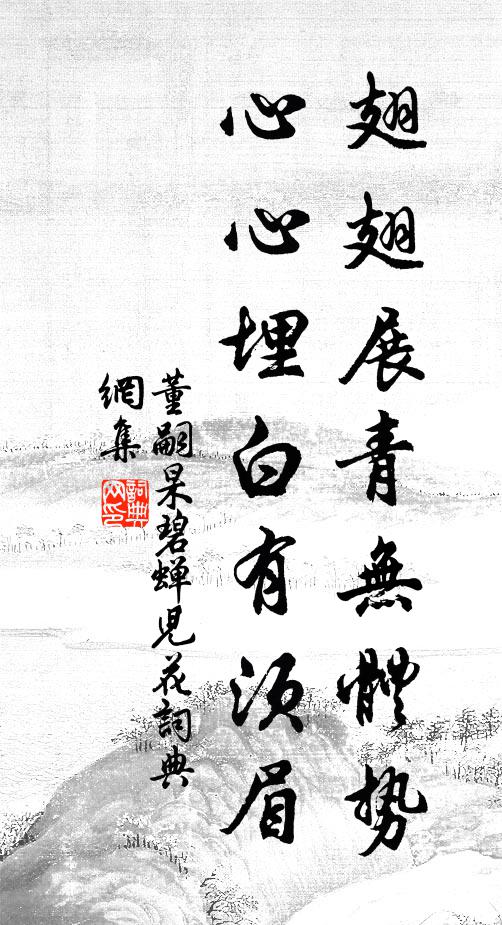 翅翅展青無體势
心心埋白有須眉
董嗣杲碧蟬儿花詞典
網集
詞典網印